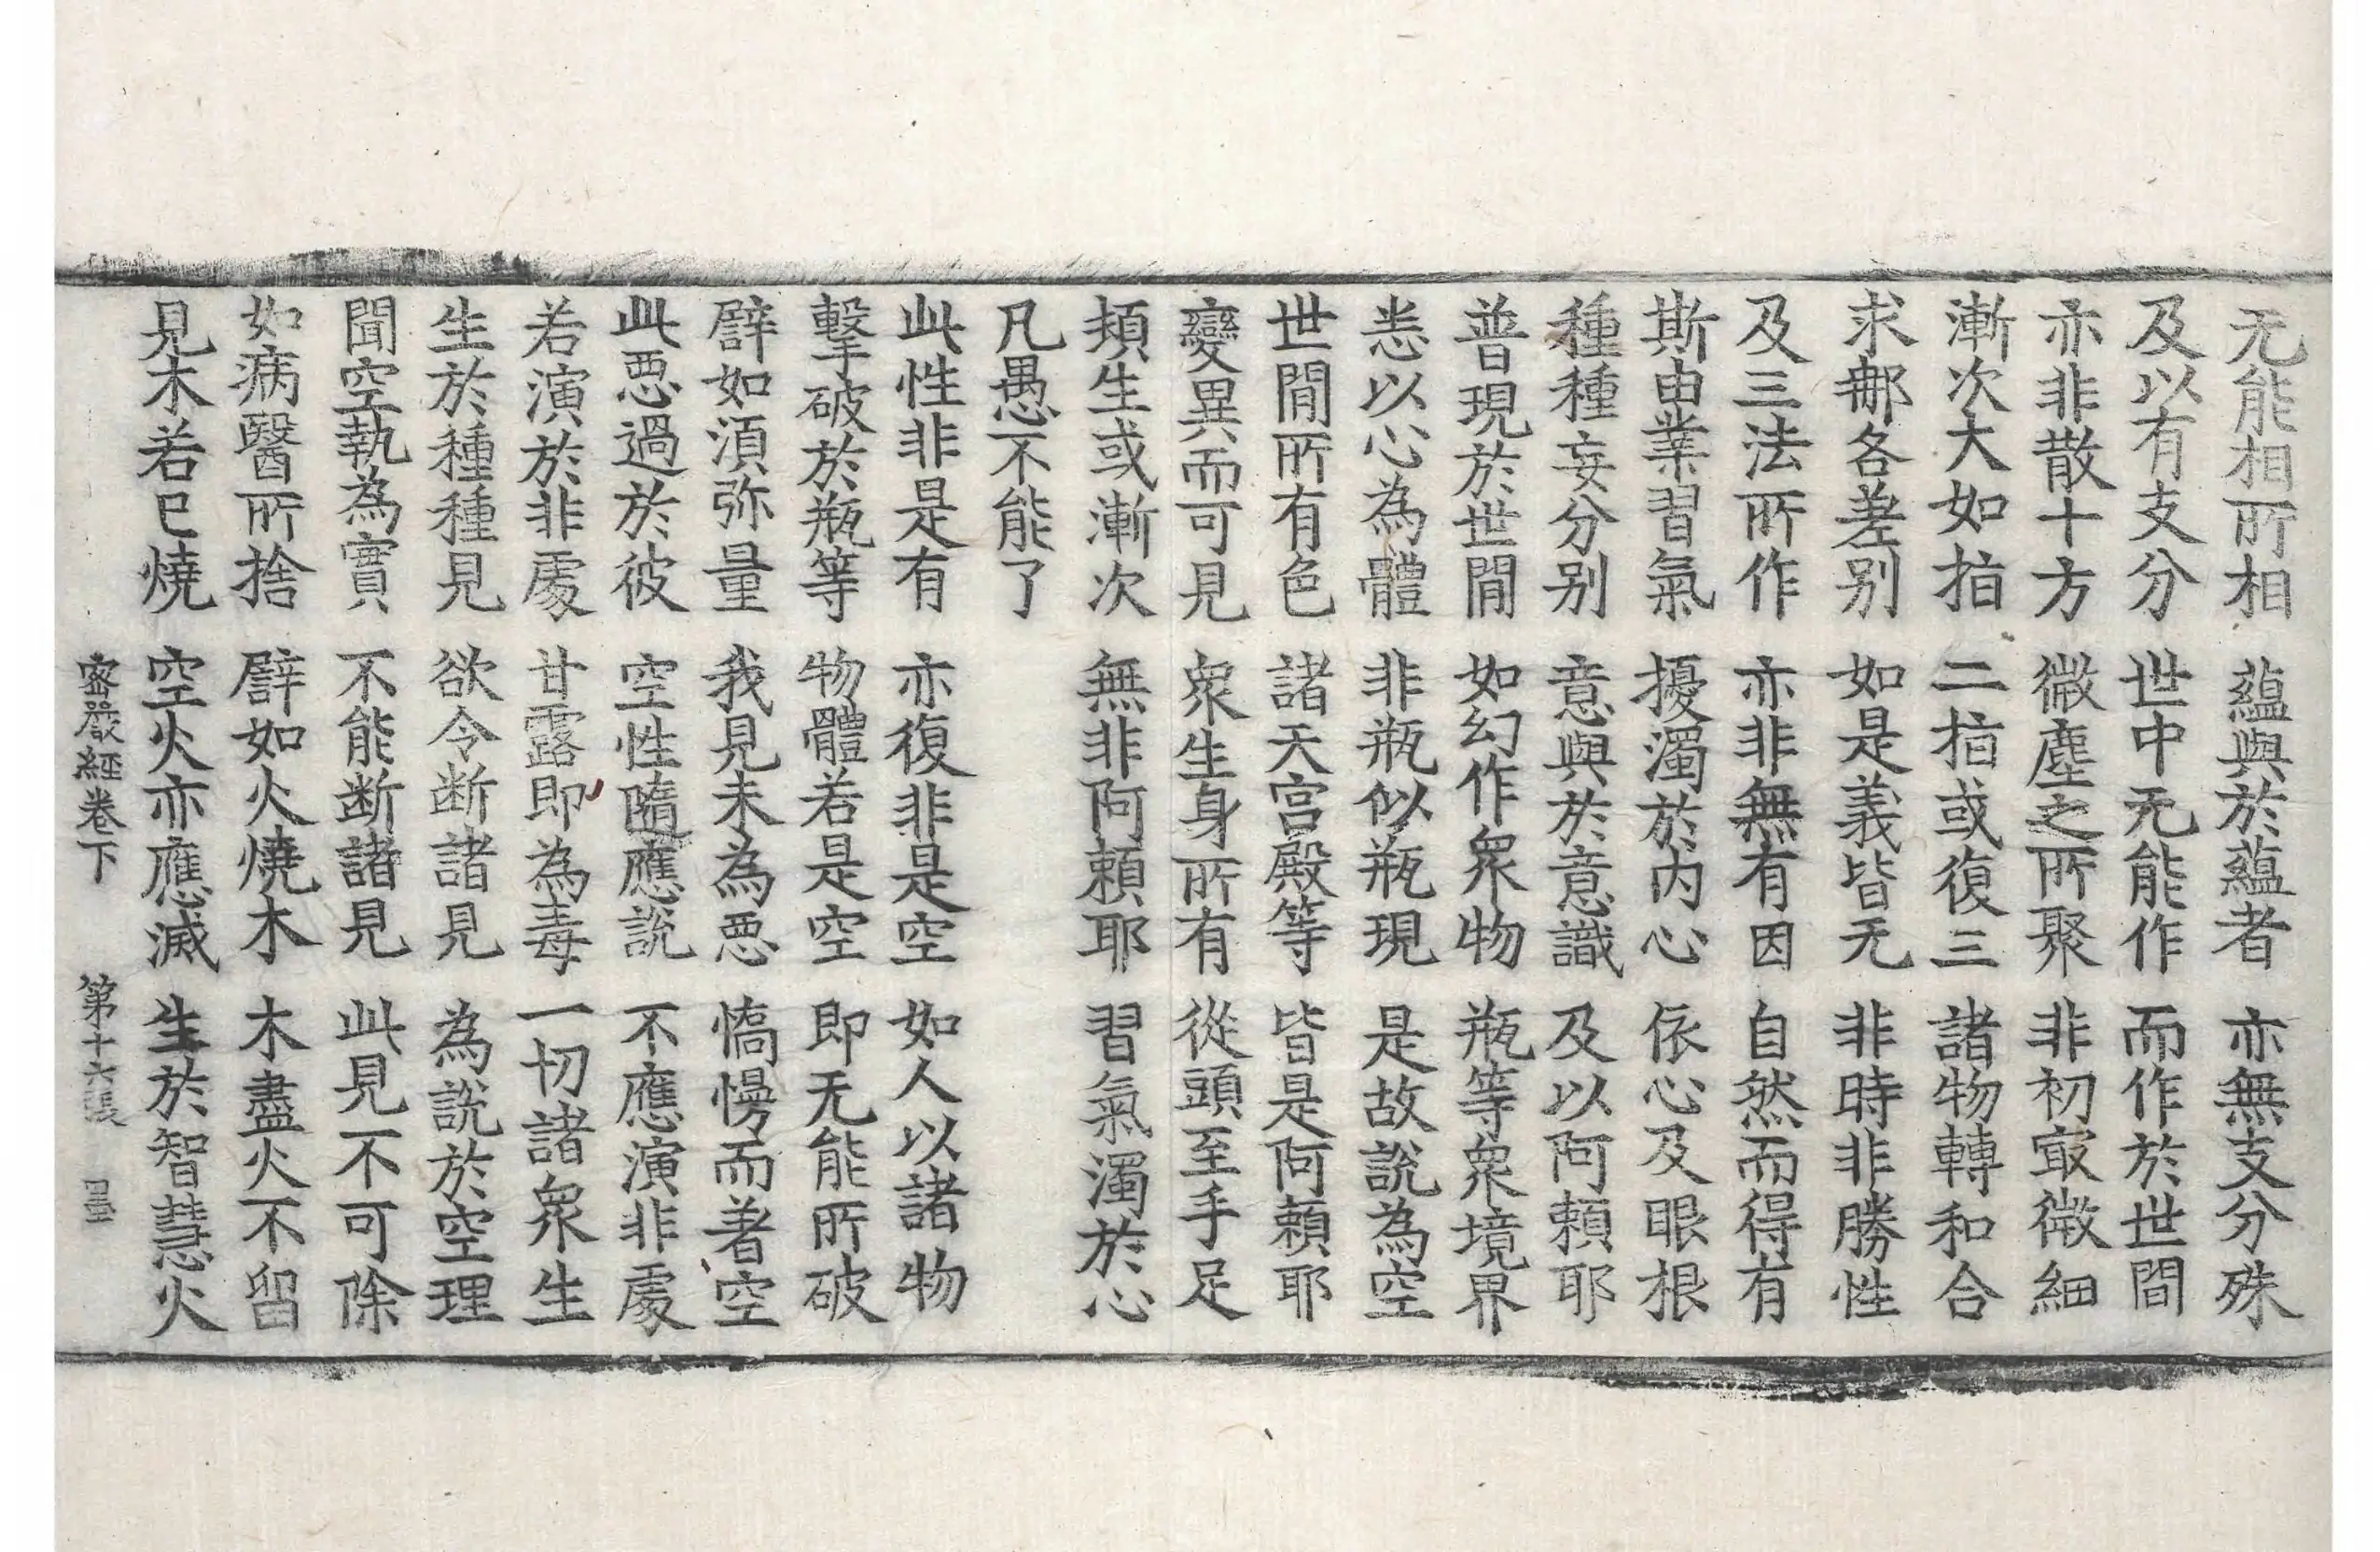 无能相所相 蘊與於蘊者 亦無支分殊
及以有支分 世中无能作 而作於世間
亦非散十方 微塵之所聚 非初㝡微細
漸次大如指 二指或復三 諸物轉和合
求郍各差别 如是義皆无 非時非勝性
及三法所作 亦非無有因 自然而得有
斯由業習氣 擾濁於内心 依心及眼根
種種妄分别 意與於意識 及以阿賴耶
普現於世間 如幻作衆物 瓶等衆境界
恙以心為體 非瓶似瓶現 是故說為空
世間所有色 諸天宫殿等 皆是阿賴耶
變異而可見 衆生身所有 從頭至手足
頬生或漸次 無非阿賴耶 習氣濁於心
凡愚不能了
此性非是有 亦復非是空 如人以諸物
擊破於瓶等 物體若是空 即无能所破
譬如須弥量 我見未為惡 憍慢而著空
此惡過於彼 空性隨應說 不應演非處
若演於非處 甘露即為毒 一切諸衆生
生於種種見 欲令断諸見 為說於空理
聞空執為實 不能断諸見 此見不可除
如病醫所捨 譬如火燒木 木盡火不留
見木若已燒 空火亦應滅 生於智慧火
密嚴經卷下 第十六張 墨